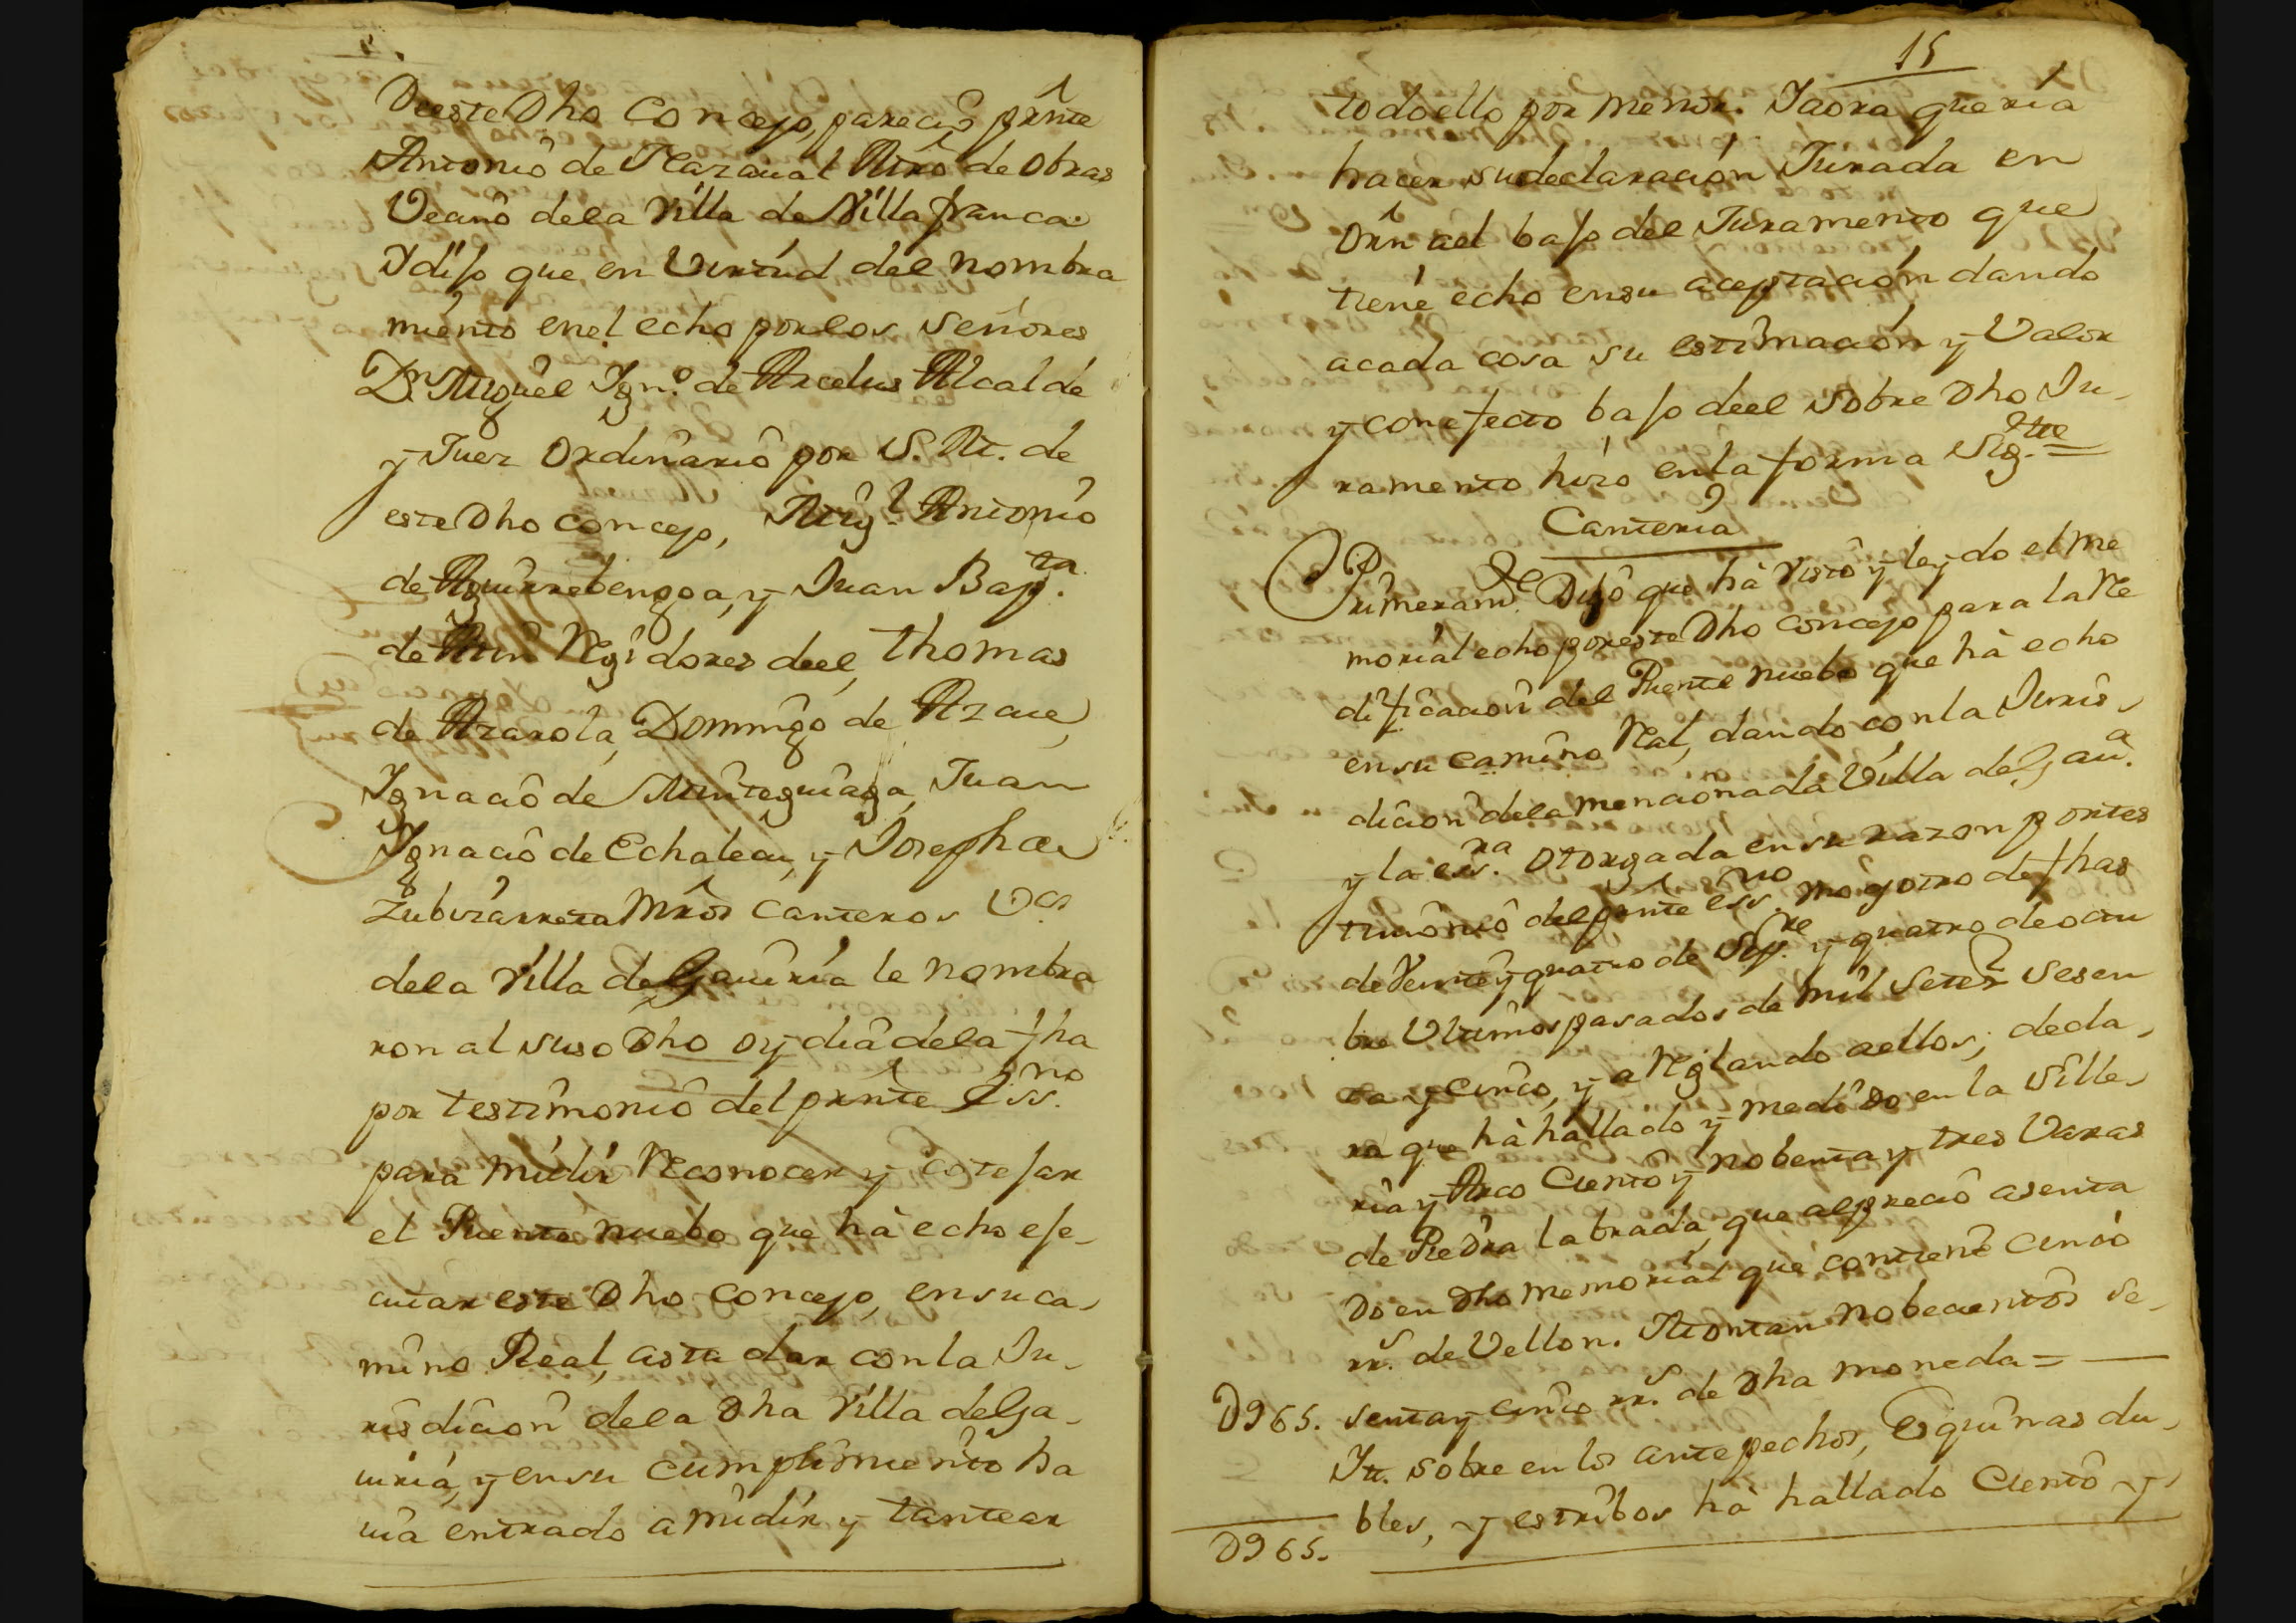 Deeste Dho Concejo, parecio prnte
Antonio de Ilarzaual Mrō de obras
Vecino dela Villa de Villafranca
Y dijo que en Virtud del nombra
miento enel echo por los Señores
Dn. Miguel Ign.o de Arcelus Alcalde
y Juez ordinario por S. M. de
este Dho concejo, Mig.l Antonio
de Aguirrebengoa, y Juan Bap.ta
de Regidores deel, thomas
de Azarola, Domingo de Azcue,
Ignacio de Minteguiaga, Juan
Ignacio de Echalecu, y Joseph de
Zubizarreta Mros Canteros Vos
dela Villa de Gauiria le nombra
ron al suso Dho oy dia dela fha
por testimonio del prnte Ess.no
para midir Reconocer y cotejar
el Puente nuebo que hà echo eje-
cutar este Dho concejo, en su ca-
mino Real, asta dar con la Ju-
risdicion dela Dha Villa de Ga-
uiria, y en su cumplimiento ha
uia entrado a midir y tantear
15
todo ello por menor. Y aora queria
hacer su declaracion Jurada en
Orn ael bajo del Juramento que
tiene echo en su aceptacion dando
acada cosa su estimacion y Valor
y con efecto bajo deel sobre Dho Ju-
ramento hizo en la forma Sig.tte =
Canteria
Primeram.te Dijo que hà visto y leydo el me
morial echo por este Dho concejo para la Re
dificacion del Puente nuebo que hà echo
en su camino Ral, dando con la Juris-
dicion dela mencionada Villa de Gau.a
y la ess.ra otorgada en su razon por tes
timonio del prnte ess.no mo y otro de fhas
de Veinte y quatro de Sep.re y quatro de octu
bre Vltimos pasados de mil Setez sesen
ta y cinco, y a Reglando aellos, decla-
ra que hà hallado y medido en la sille-
ria y Arco Ciento y nobenta y tres Varas
de Piedra labrada, que al precio asenta
do en dho memorial que contiene cinco
rr.s de Vellon. Montan nobecientos se-
D965. senta y cinco rr.s de Dha moneda =
Itt. sobre en los antepechos, esquinas du-
bles, y estribos hà hallado Ciento y
D965.